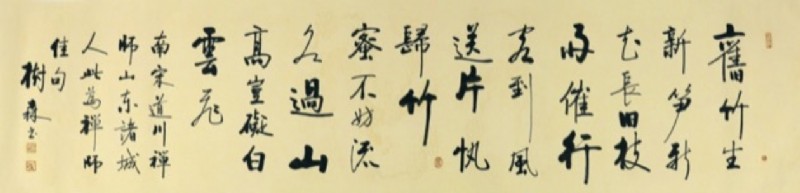 舊竹生
新笋新
花長旧枝
雨催行
客到風
送片帆
歸竹
蜜不妨流
水過山
高豈礙白
雲飛
南宋道川禪
師山东諸城
人此為禪師
佳句
樹森書